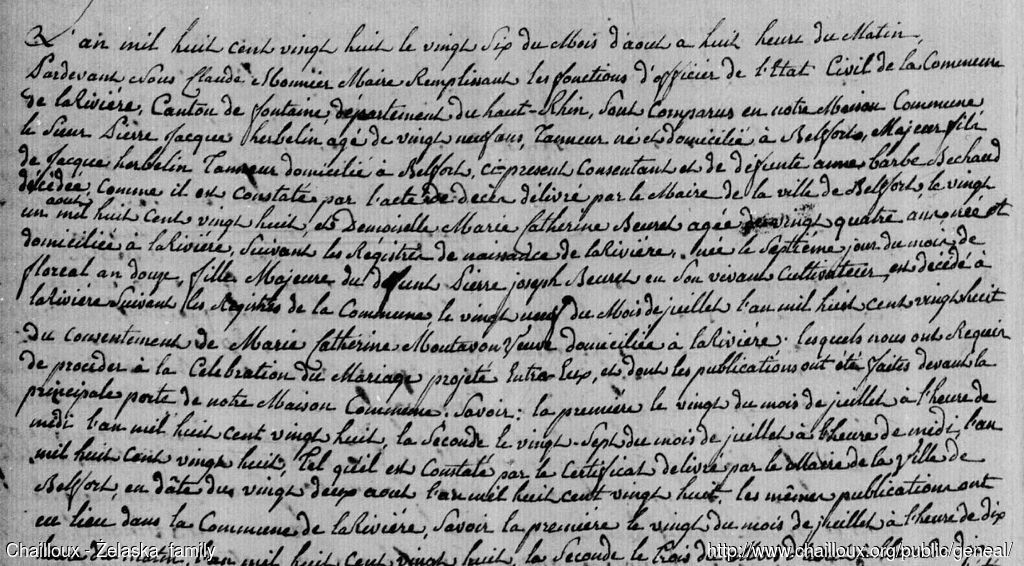 L'an mil huit cent vingt huit le vingt Six du Mois d'aout a huit heure du Matin,
Pardevant Nous Claude Monnier Maire Remplissant les fonctions d'officier de l'Etat Civil de la Commune
de laRiviére, Canton de fontaine, departement du haut-Rhin, Sont Comparus en notre Maison Commune
le Sieur Pierre Jacque herbelin agé de vingt neuf ans, Tanneur né et domicilié à Belfort, Majeur fils
de Jacque herbelin Tanneur domicilié à Belfort, ci-present Consentant et de défunte anne barbe Bechaud
décédée, comme il est constaté par l'acte de décès délivré par le Maire de la ville de Belfort le vingt
aout
un mil huit cent vingt huit, et Demoiselle Marie Catherine Beuret agée de vingt quatre ans née et
domiciliée à laRiviére, Suivant les Régistres de naissance de laRiviére, née le Septiéme jour du mois de
floreal an douze, fille Majeure du défunt Pierre joseph Beuret en Son vivant Cultivateur, est décédé à
laRiviére Suivant les Registres de la Commune le vingt neuf du Mois de juillet l'an mil huit cent vingt huit
du consentement de Marie Catherine Moutavon Veuve domiciliée à laRiviére. lesquels nous ont Requis
de procéder à la Celebration du Mariage projeté Entre Eux, et dont les publications ont été faites devant la
principale porte de notre Maison Commune. Savoir: la premiere le vingt du mois de juillet à l'heure de
midi l'an mil huit cent vingt huit, la Seconde le vingt-Sept du mois de juillet à l'heure de midi, l'an
mil huit cent vingt huit, Tel qu'il est Constaté par le Certificat délivré par le Maire de la Ville de
Belfort, en dâte du vingt deux aout l'an mil huit cent vingt huit, les mêmes publications ont
eu lieu dans la Commune de laRiviére, Savoir la premiére le vingt du mois de juillet à l'heure de dix
du matin, l'an mil huit cent vingt huit, la Seconde le
Chailloux - Żelaska family
http://www.chailloux.org/public/geneal/